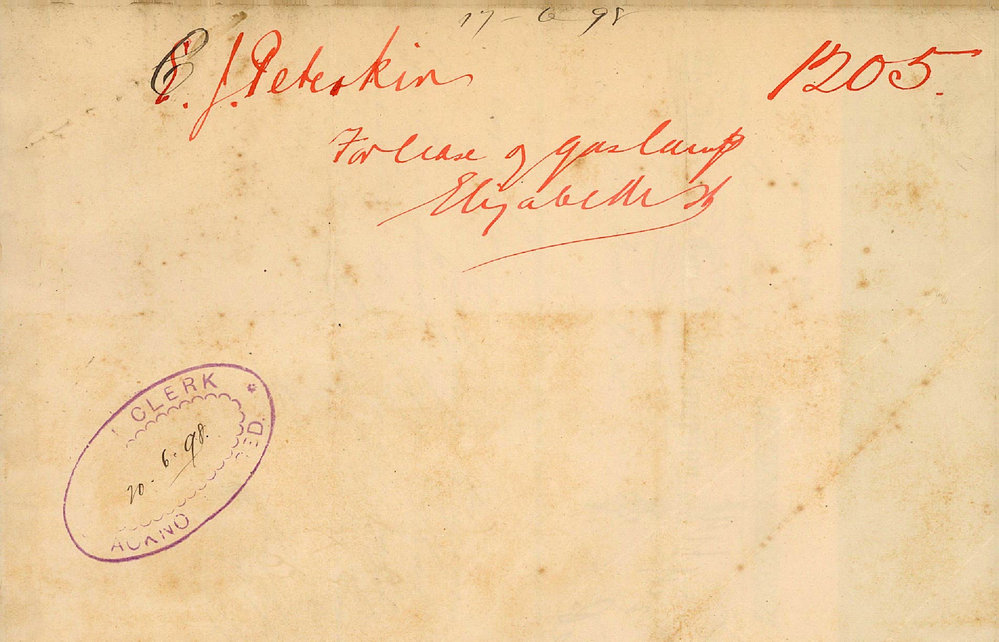 17-6-98
E. J. Peterkin 1205.
For lease of gas lamp
Elizabeth St
CLERK
20.6.98.
ACKNO ED. *